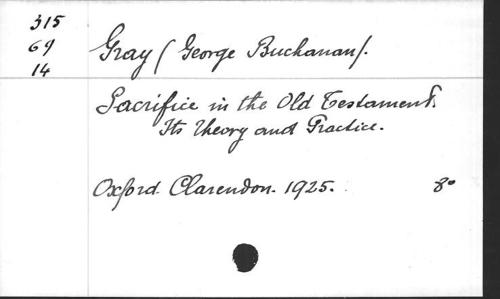 315
69
14
Gray (George Buchanan).
Sacrifice in the Old Testament.
Its Theory and Practice.
Oxford. Clarendon. 1925. 8°